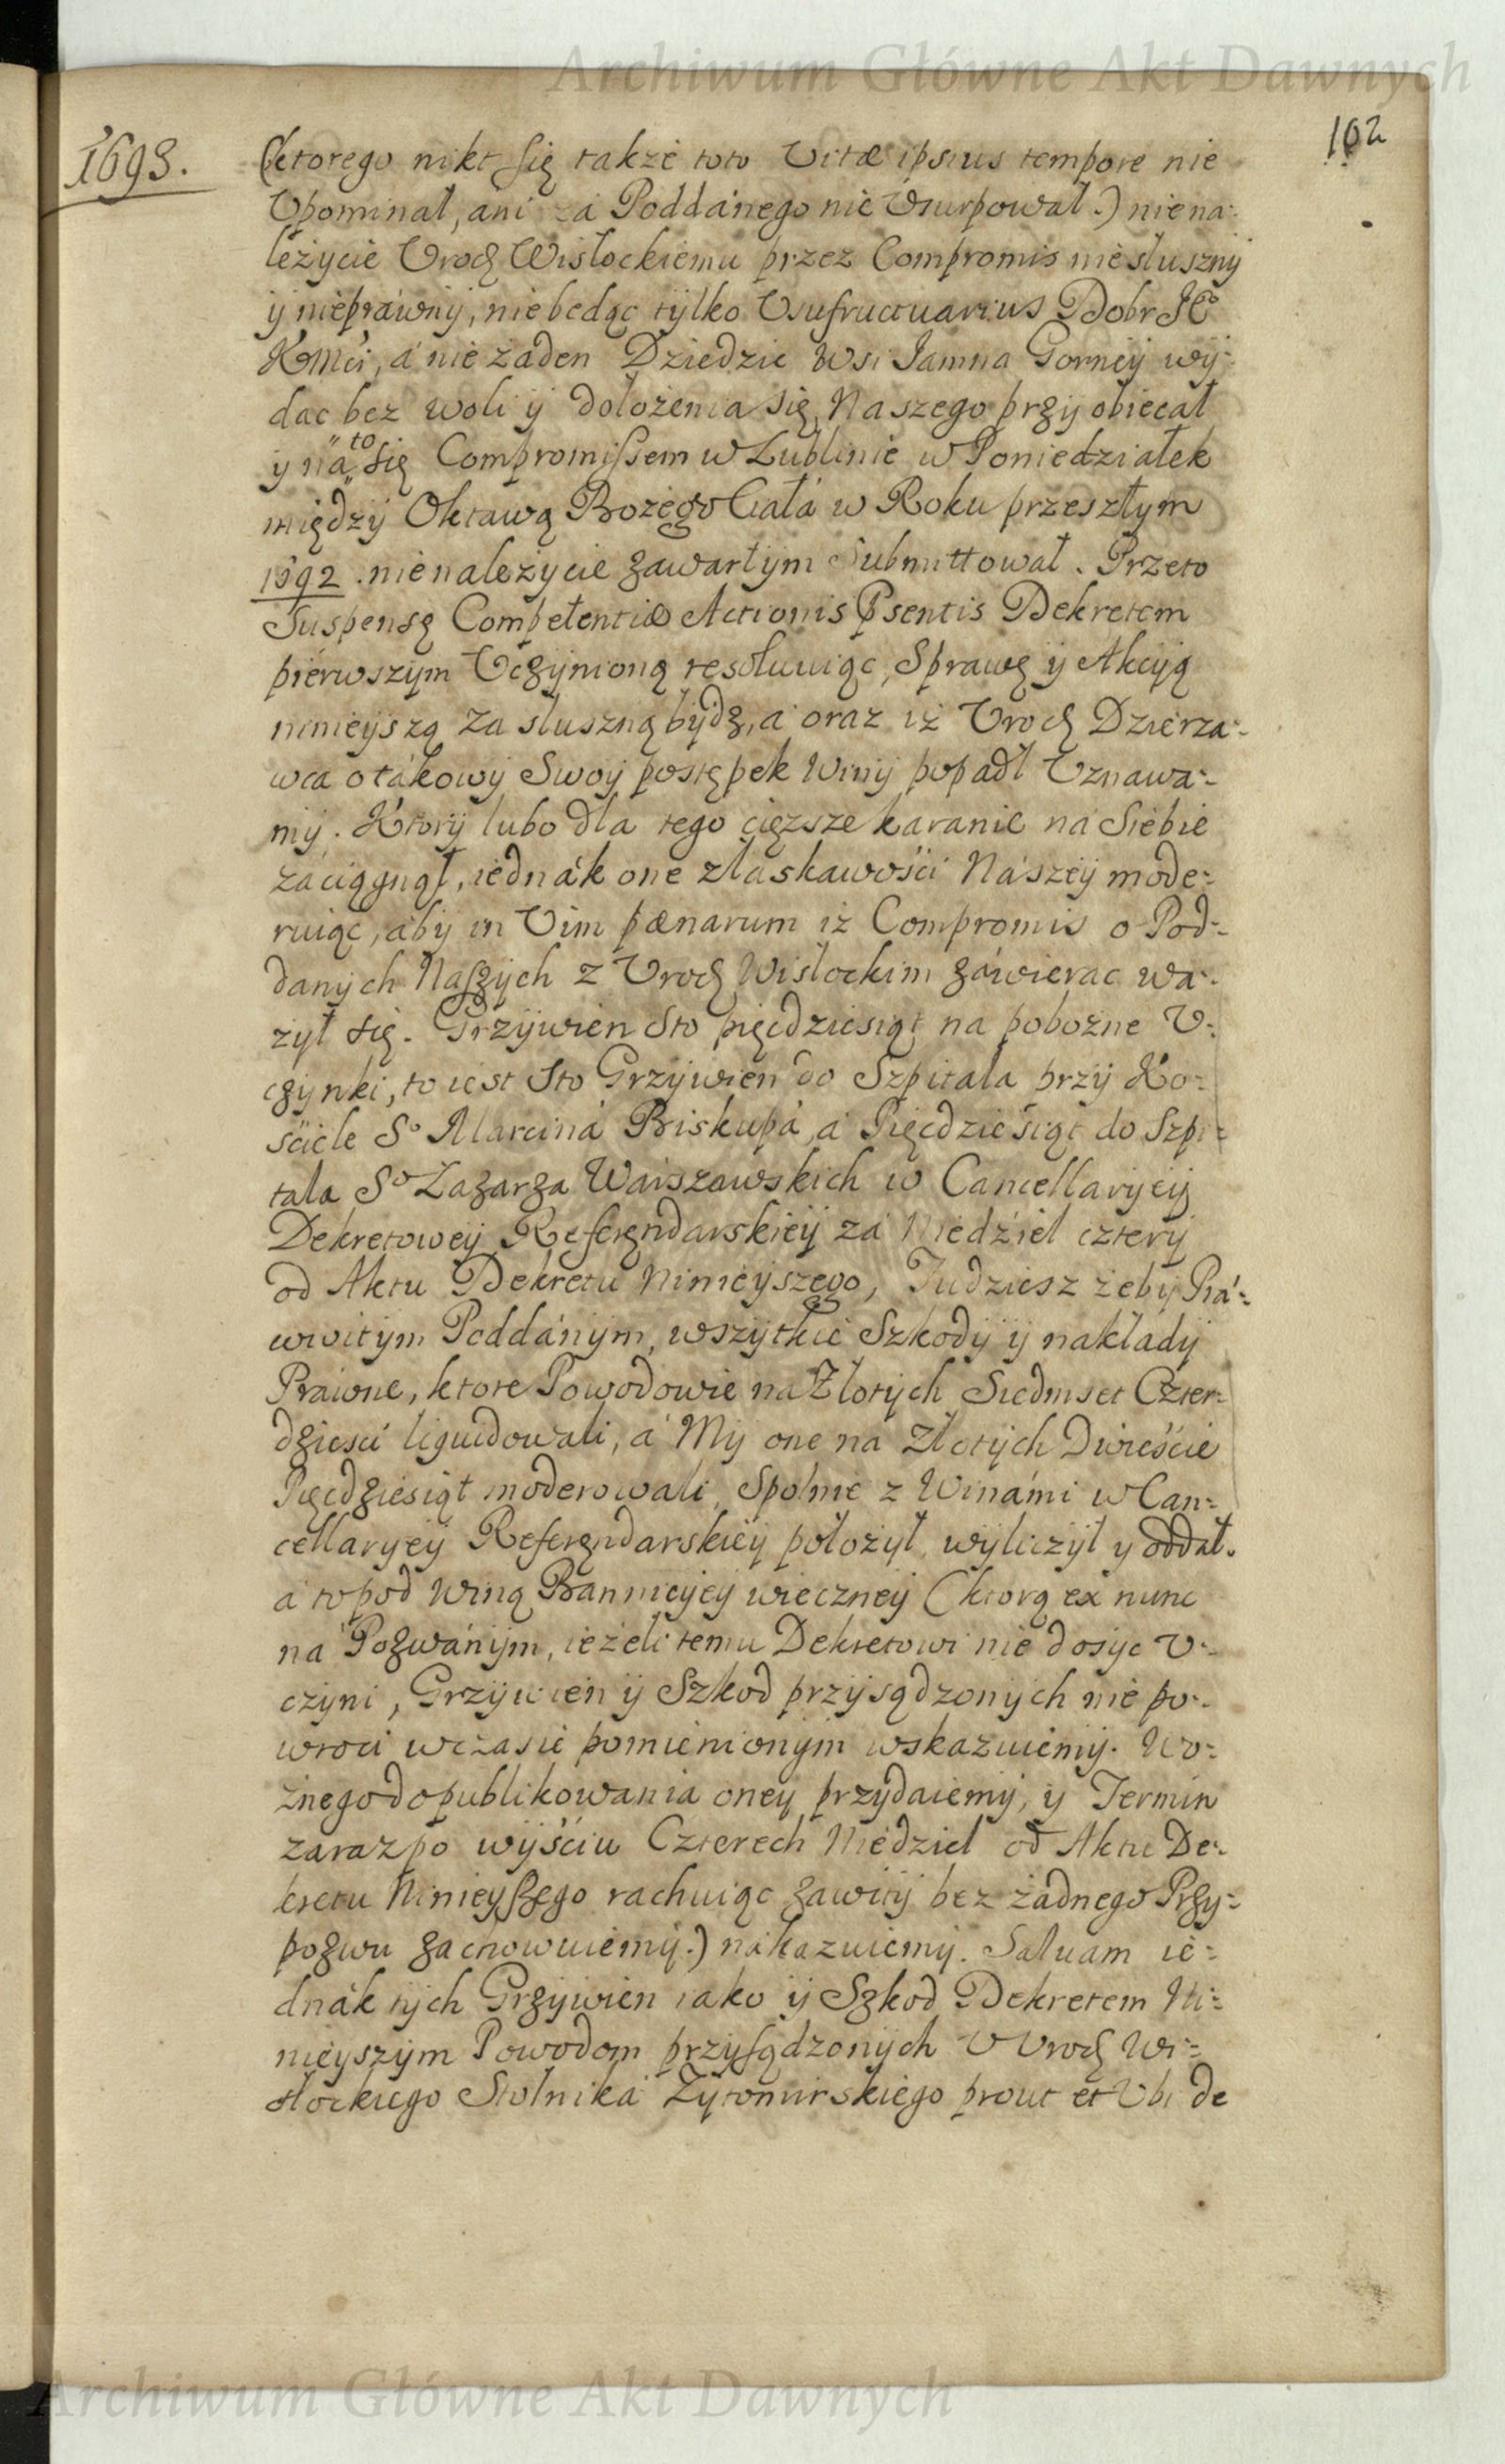 Archiwum Główne Akt Dawnych
102
1693.
(ktorego nikt się także toto Vitæ ipsius tempore nie
Vpominał, ani za Poddánego nie Vsurpował.) niena-
leżycie Urod Wisłockiemu przez Compromis niesłuszny
y nieprawny, niebędąc tylko Vsufructuarius Dobr JKo
KMći, á nie żaden Dziedzic Wsi Jamna Gorney wy-
dac bez woli y dołożenia się Naszego przyobiecał
y ná to się Compromissem w Lublinie w Poniedziałek
między Oktawą Bożego Ciałá w Roku przeszłym
1692. nienależycie zawartym Submittował. Przeto
Suspensę Competentiæ Actionis Psentis Dekretem
pierwszym Vczynioną resolwuiąc, Sprawę y Akcyą
ninieyszą za słuszną bydz, á oraz iż Urod Dzierża-
wca o tákowy Swoy postępek Winy popadł Vznawa-
my. Ktory lubo dla tego cięzsze karanie ná Siebie
záciągnął, iednák one z łaskawośći Nászey mode-
ruiąc, áby in Vim pænarum iż Compromis o Pod-
danych Naszych z Urod Wisłockim záwierac wa-
żył się. Grzywien Sto pięcdziesiąt na pobożne V-
czynki, to iest Sto Grzywien do Szpitala przy Ko-
śćiele So Marciná Biskupá, á Pięcdzieśiąt do Szpi-
tala So Łazarza Warszawskich w Cancellaryey
Dekretowey Referęndarskiey zá Niedziel cztery
od Aktu Dekretu Ninieyszego, Tudziesz żeby Prá-
wowitym Poddánym, wszytkie Szkody y nakłády
Prawne, ktore Powodowie na Złotych Siedmset Czter-
dziesci liquidowali, á My one na Złotych Dwieśćie
Pięcdziesiąt moderowali, Spolnie z Winámi w Can-
cellaryey Referęndarskiey położył, wyliczył y oddał.
á to pod Winą Bannicyey wieczney (ktorą ex nunc
ná Pozwánym, ieżeli temu Dekretowi nie dosyc V-
czyni, Grzywien y Szkod przysądzonych nie po-
wroci wczasie pomienionym wskazuiemy. Wo-
źnego do publikowania oney przydaiemy, y Termin
zaraz po wyśćiu Czterech Niedziel od Aktu De-
kretu Ninieyszego rachuiąc zawity bez żadnego Przy-
pozwu zachowuiemy.) nákazuiemy. Saluam ie-
dnák tych Grzywien iako y Szkod Dekretem Ni-
nieyszym Powodom przysądzonych V Urod Wi-
słockiego Stolniká Zytomirskiego prout et Vbi de
Archiwum Główne Akt Dawnych